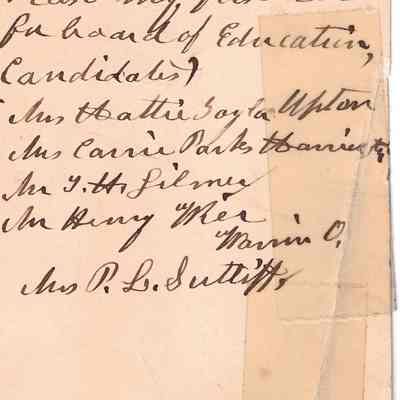 Please my
for board of Education,
Candidates)
Mrs Hattie Taylor Upton
Mrs Carrie Parks Harrington
Mr T. H. Gilmer
Mr Henry Wier
Warren O.
Mrs P. L. Sutliff,